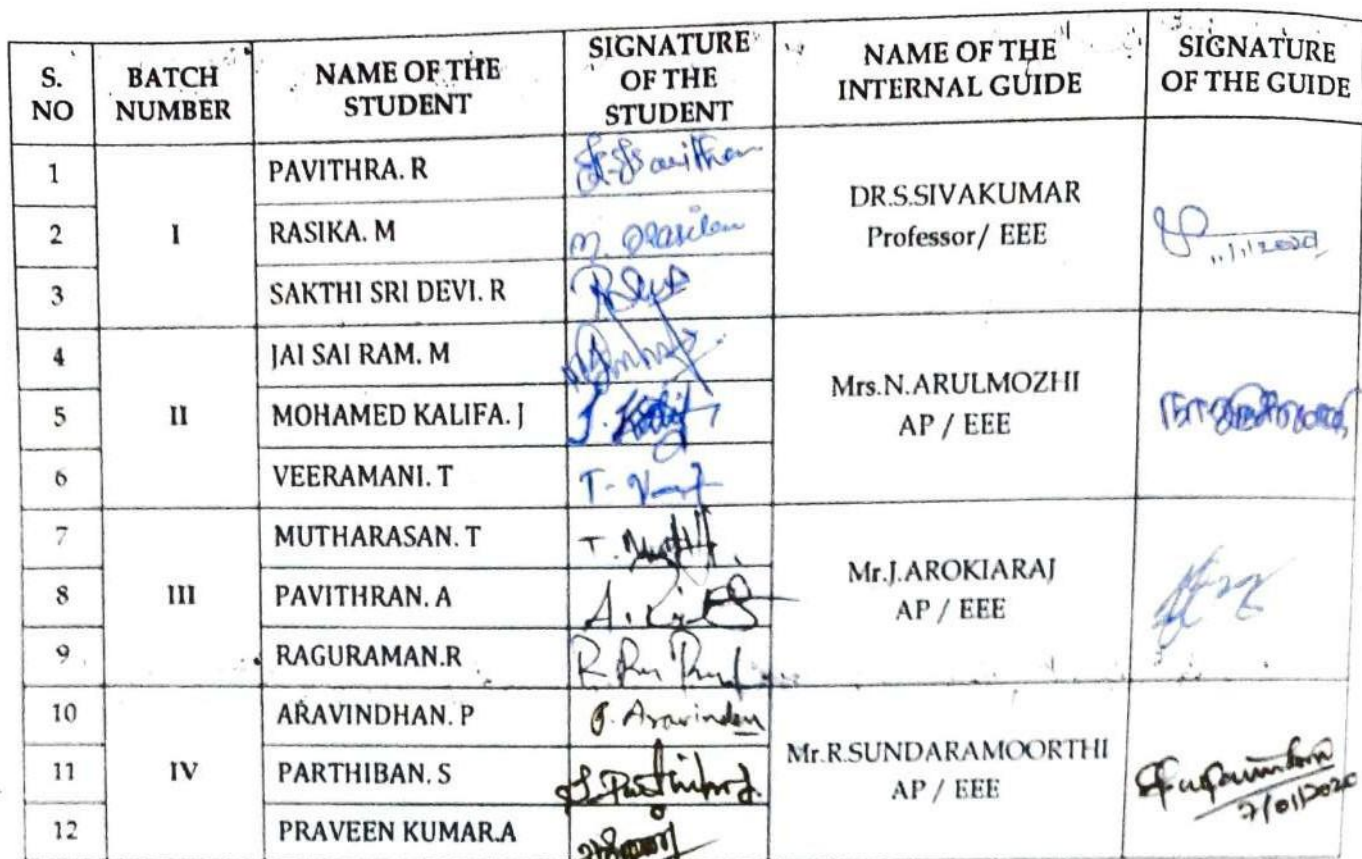 S. NO
BATCH NUMBER
NAME OF THE STUDENT
SIGNATURE OF THE STUDENT
NAME OF THE INTERNAL GUIDE
SIGNATURE OF THE GUIDE
1
I
PAVITHRA. R
DR.S.SIVAKUMAR
Professor/ EEE
11/1/2020
2
RASIKA. M
3
SAKTHI SRI DEVI. R
4
II
JAI SAI RAM. M
Mrs.N.ARULMOZHI
AP / EEE
5
MOHAMED KALIFA. J
6
VEERAMANI. T
7
III
MUTHARASAN. T
Mr.J.AROKIARAJ
AP / EEE
8
PAVITHRAN. A
9
RAGURAMAN.R
10
IV
ARAVINDHAN. P
P. Aravindan
Mr.R.SUNDARAMOORTHI
AP / EEE
7/01/2020
11
PARTHIBAN. S
12
PRAVEEN KUMAR.A